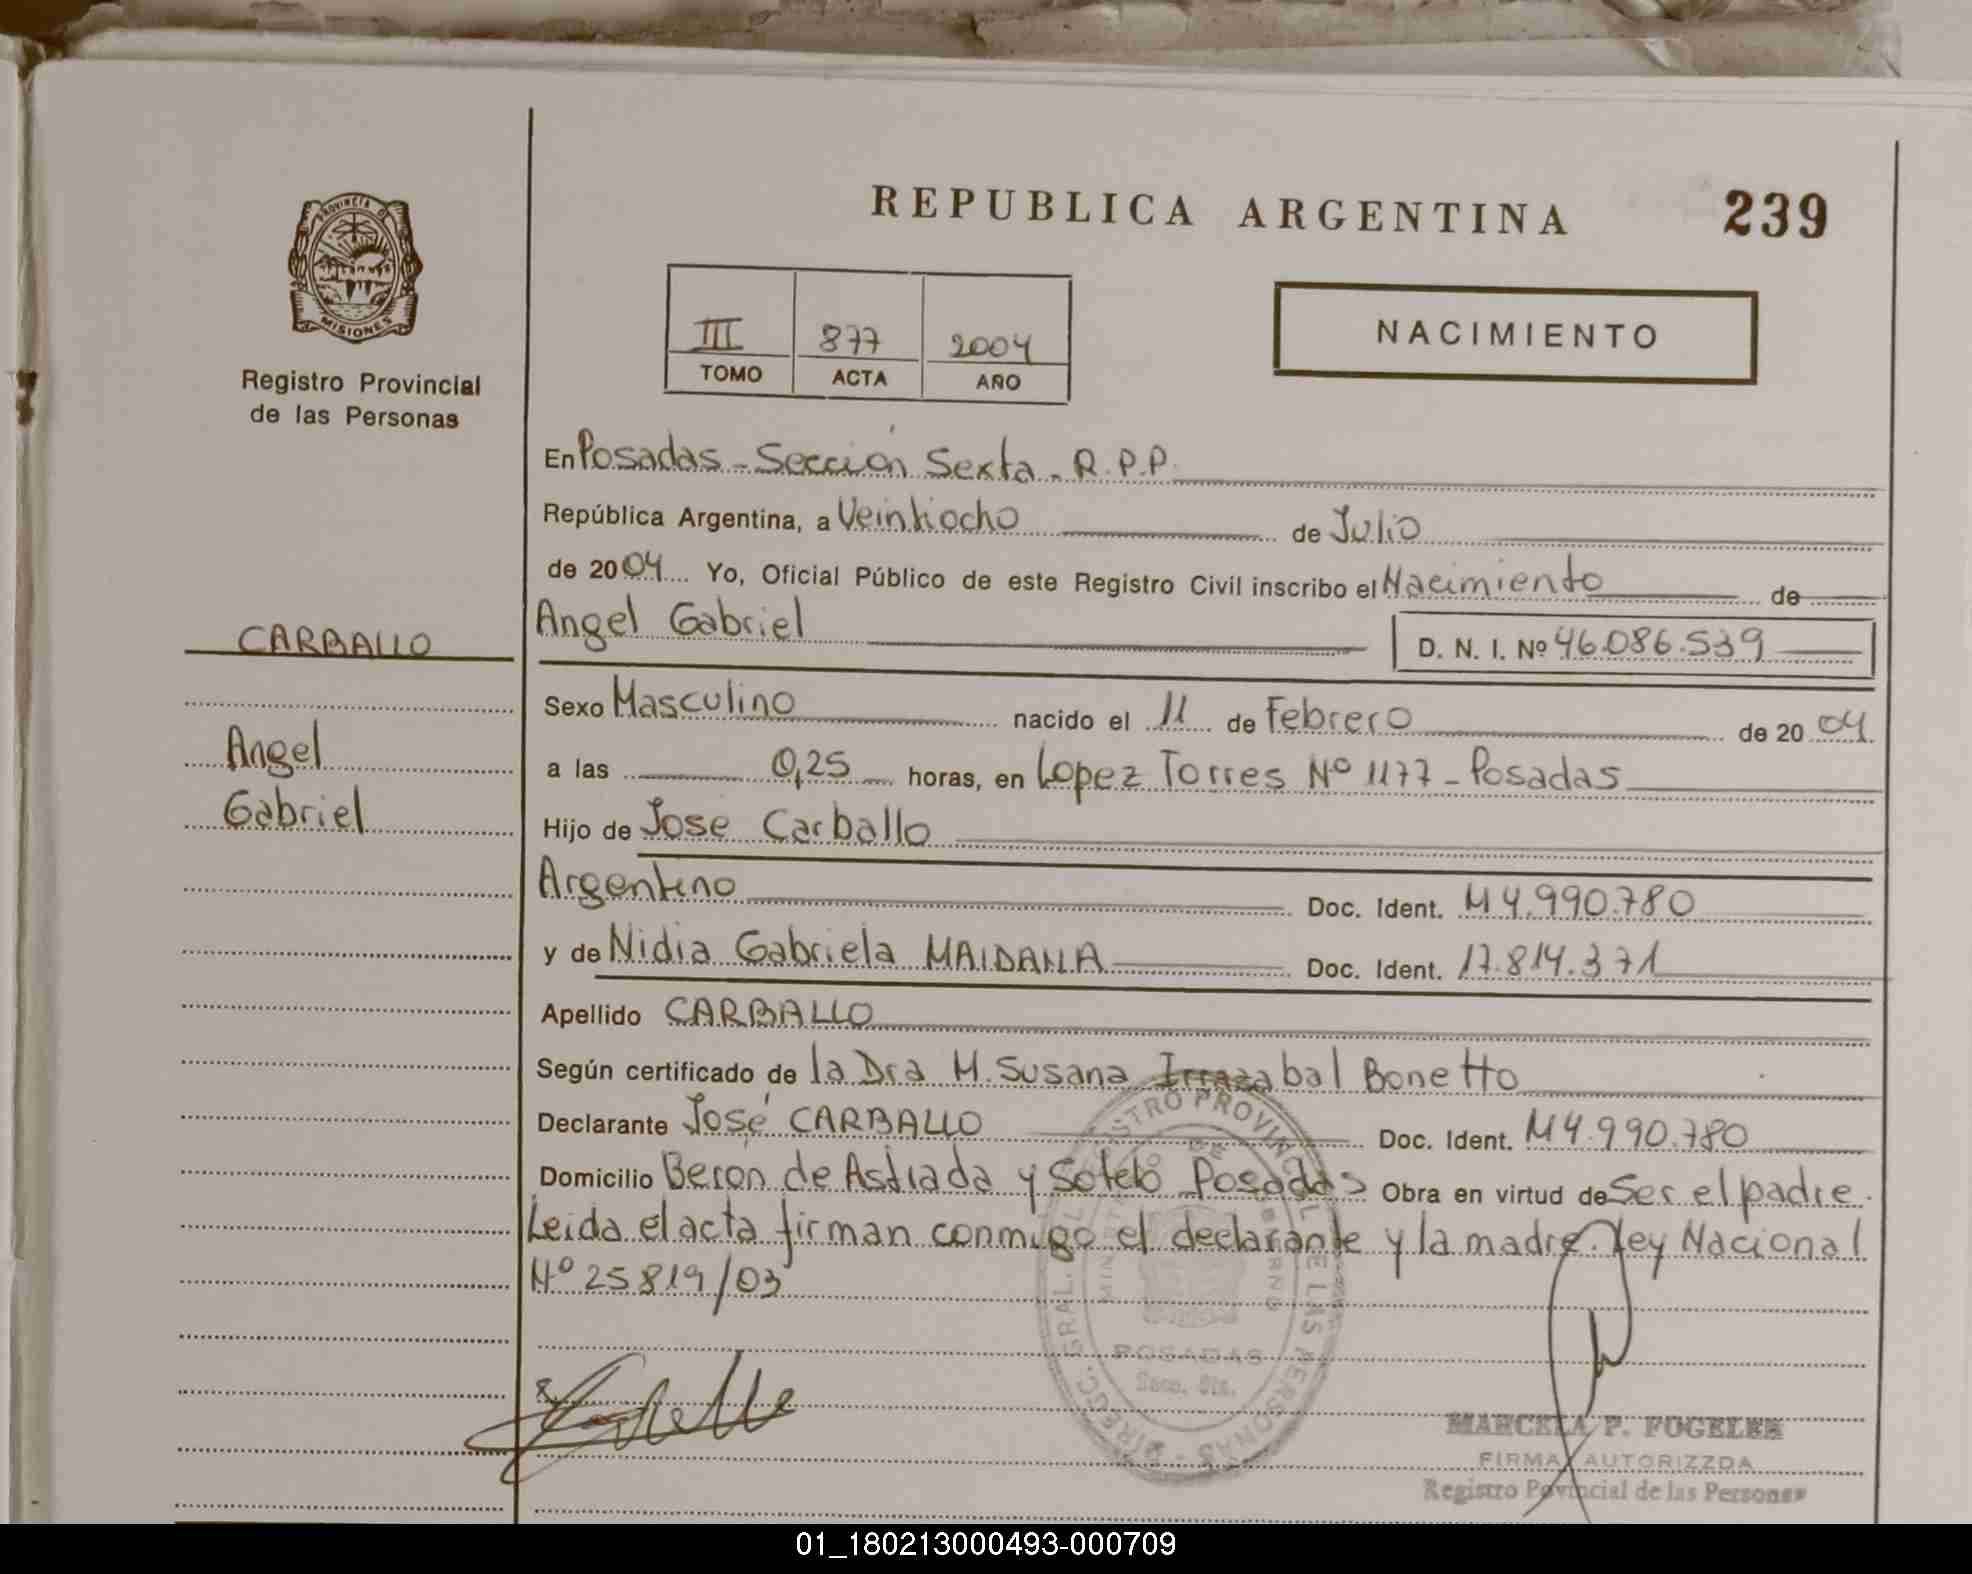 REPUBLICA ARGENTINA
239
PROVINCIA DE
MISIONES
Registro Provincial
de las Personas
III 877 2004
TOMO ACTA AÑO
NACIMIENTO
En Posadas - Sección Sexta - R.P.P.
República Argentina, a Veintiocho de Julio
de 2004 Yo, Oficial Público de este Registro Civil inscribo el Nacimiento de
CARBALLO
Angel Gabriel D. N. I. Nº 46.086.539
Sexo Masculino nacido el 11 de Febrero de 2004
Angel
a las 0,25 horas, en Lopez Torres Nº 1177 - Posadas
Gabriel
Hijo de Jose Carballo
Argentino Doc. Ident. M 4.990.780
y de Nidia Gabriela MAIDANA Doc. Ident. 17.814.371
Apellido CARBALLO
Según certificado de la Dra M. Susana Irrazabal Bonetto
Declarante José CARBALLO Doc. Ident. M4.990.780
Domicilio Berón de Astrada y Sotelo Posadas Obra en virtud de Ser el padre.
Leida el acta firman conmigo el declarante y la madre. Ley Nacional
Nº 25819/03
DIRECC. GRAL. REGISTRO PROVINCIAL DE LAS PERSONAS
MINISTERIO DE GOBIERNO
POSADAS
MARCELA P. FOGELER
FIRMA AUTORIZZDA
Registro Povincial de las Personas
01_180213000493-000709